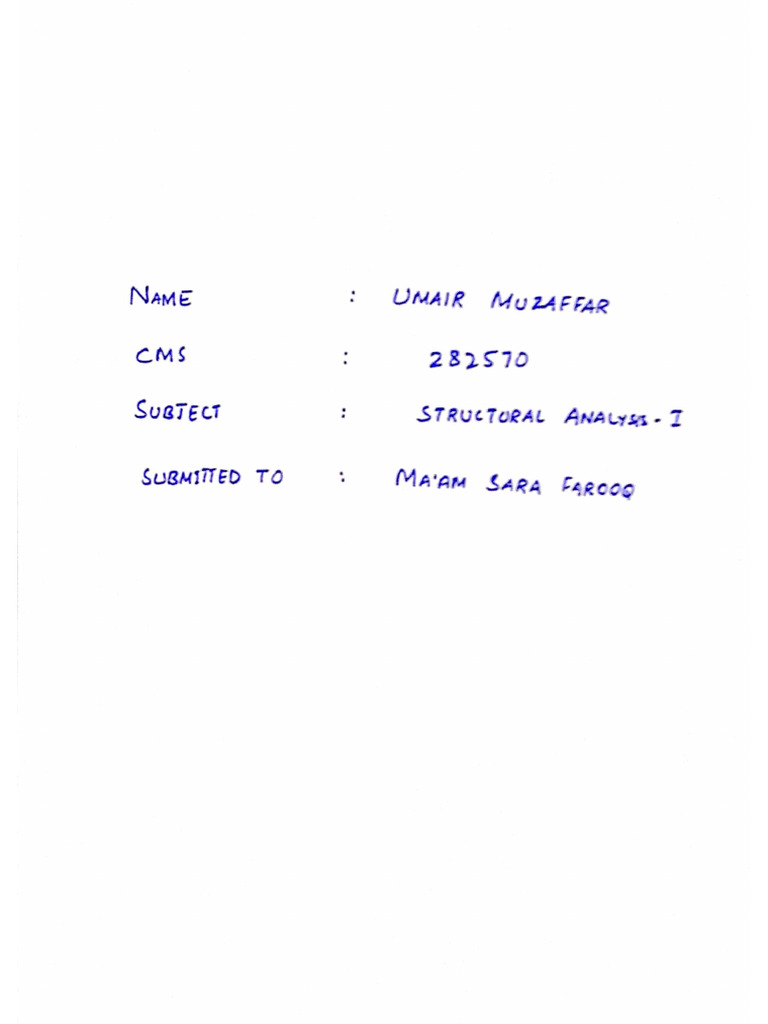 NAME : UMAIR MUZAFFAR
CMS : 282570
SUBJECT : STRUCTURAL ANALYSIS - I
SUBMITTED TO : MA'AM SARA FAROOQ